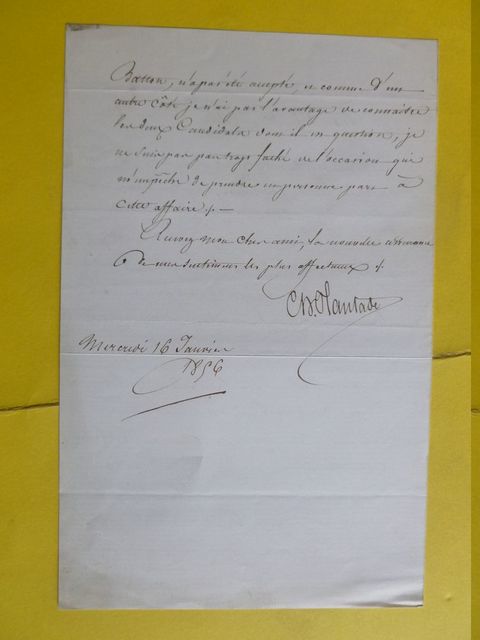 Batton, n'a pas été accepté, et comme d'un
autre côté je n'ai pas l'avantage de connaitre
les deux Candidats dont il est question, je
ne suis pas par trop faché de l'occasion qui
m'empêche de prendre en personne part à
cette affaire ./.
Recevez mon cher ami, la nouvelle assurance
de mes sentimens les plus affectueux ./.
Ch. Plantade
Mercredi 16 Janvier
1856